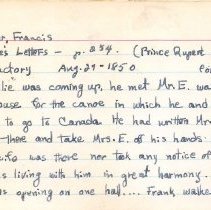 r, Francis
es Letters - p. 254. (Prince Rupert
actory Aug-29-1850
lie was coming up, he met Mr. E. wa
ouse for the canoe in which he and
to go to Canada. He had written Mr
there and take Mrs. E. off his hands.
wife was there nor took any notice of
s living with him in great harmony.
s opening on one hall.... Frank walke